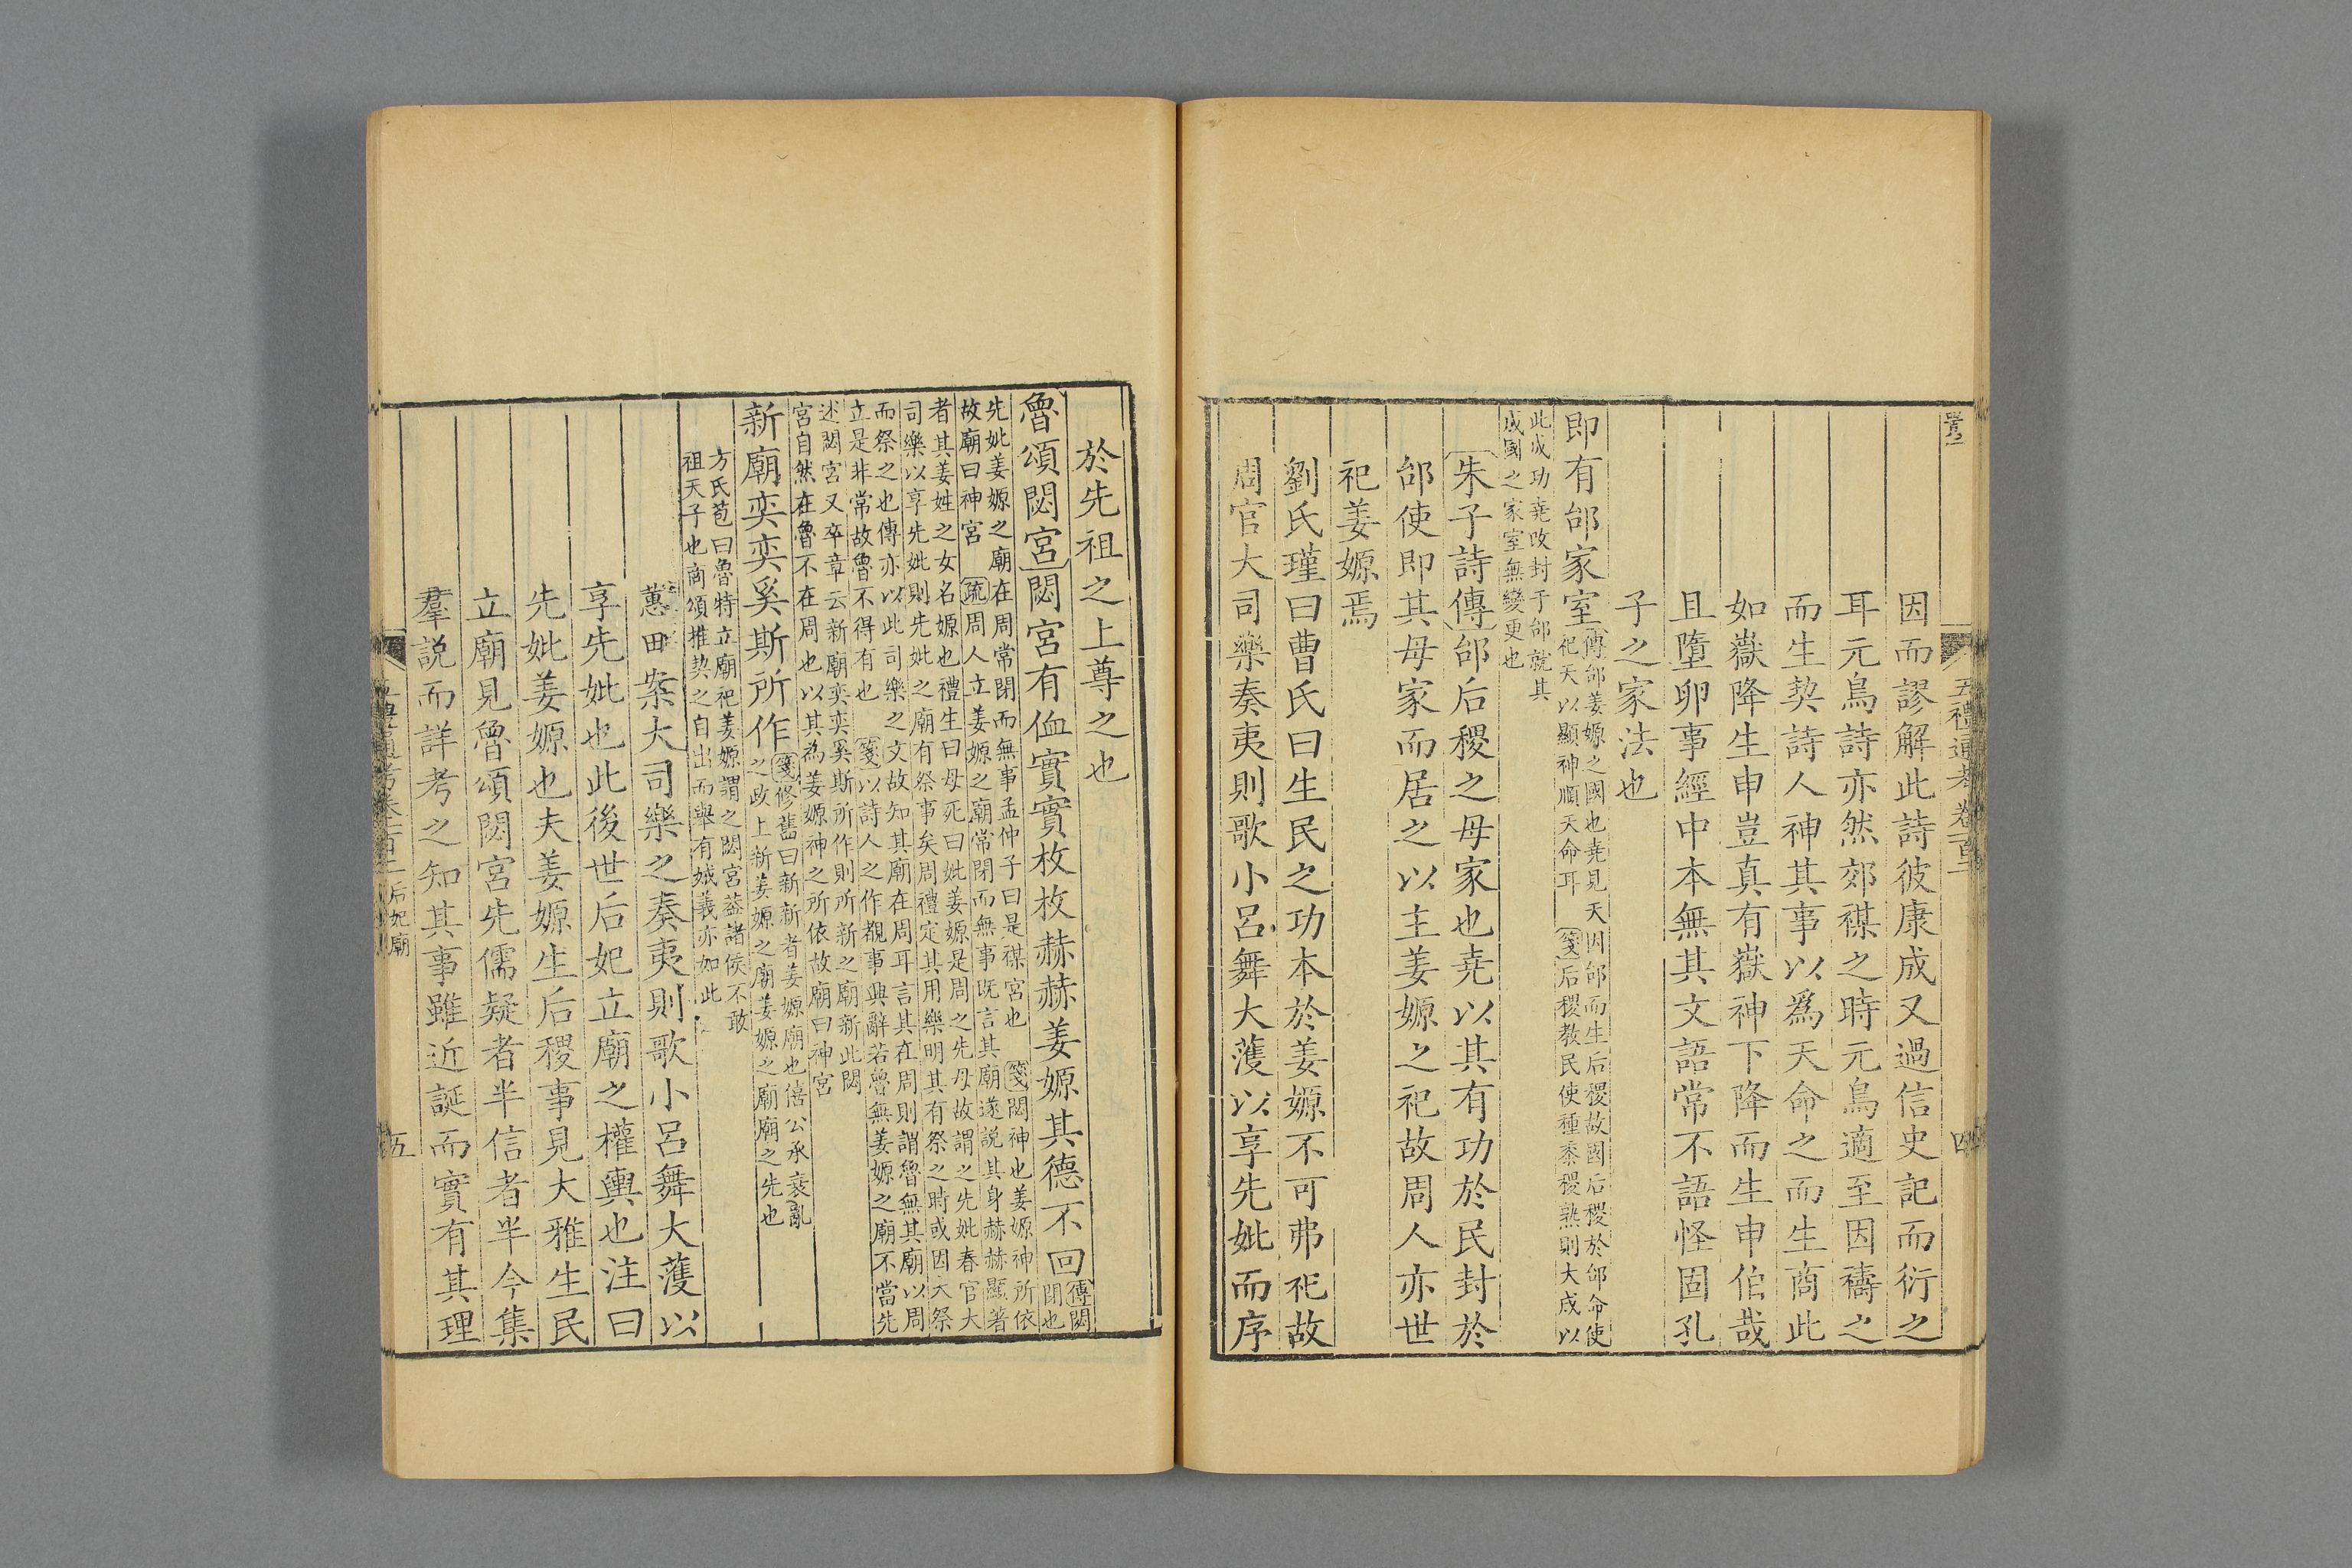 五禮通考卷一百二
四
因而謬解此詩彼康成又過信史記而衍之
耳元鳥詩亦然郊禖之時元鳥適至因禱之
而生契詩人神其事以爲天命之而生商此
如嶽降生申豈真有嶽神下降而生申伯哉
且墮卵事經中本無其文語常不語怪固孔
子之家法也
即有邰家室
傳邰姜嫄之國也堯見天因邰而生后稷故國后稷於邰命使
祀天以顯神順天命耳 箋后稷教民使種黍稷熟則大成以
此成功堯改封于邰就其
成國之家室無變更也
朱子詩傳邰后稷之母家也堯以其有功於民封於
邰使即其母家而居之以主姜嫄之祀故周人亦世
祀姜嫄焉
劉氏瑾曰曹氏曰生民之功本於姜嫄不可弗祀故
周官大司樂奏夷則歌小呂舞大濩以享先妣而序
於先祖之上尊之也
魯頌閟宮閟宮有侐實實枚枚赫赫姜嫄其德不回
傳閟
閉也
先妣姜嫄之廟在周常閉而無事孟仲子曰是禖宮也 箋閟神也姜嫄神所依
故廟曰神宮 疏周人立姜嫄之廟常閉而無事既言其廟遂說其身赫赫顯著
者其姜姓之女名嫄也禮生曰母死曰妣姜嫄是周之先母故謂之先妣春官大
司樂以享先妣則先妣之廟有祭事矣周禮定其用樂明其有祭之時或因大祭
而祭之也傳亦以此司樂之文故知其廟在周耳言其在周則謂魯無其廟以周
立是非常故魯不得有也 箋以詩人之作覩事興辭若魯無姜嫄之廟不當先
述閟宮又卒章云新廟奕奕奚斯所作則所新之廟新此閟
宮自然在魯不在周也以其為姜嫄神之所依故廟曰神宮
新廟奕奕奚斯所作
箋修舊曰新新者姜嫄廟也僖公承衰亂
之政上新姜嫄之廟姜嫄之廟廟之先也
方氏苞曰魯特立廟祀姜嫄謂之閟宮葢諸侯不敢
祖天子也商頌推契之自出而舉有娀義亦如此
蕙田案大司樂之奏夷則歌小呂舞大濩以
享先妣也此後世后妃立廟之權輿也注曰
先妣姜嫄也夫姜嫄生后稷事見大雅生民
立廟見魯頌閟宮先儒疑者半信者半今集
羣說而詳考之知其事雖近誕而實有其理
后妃廟
五